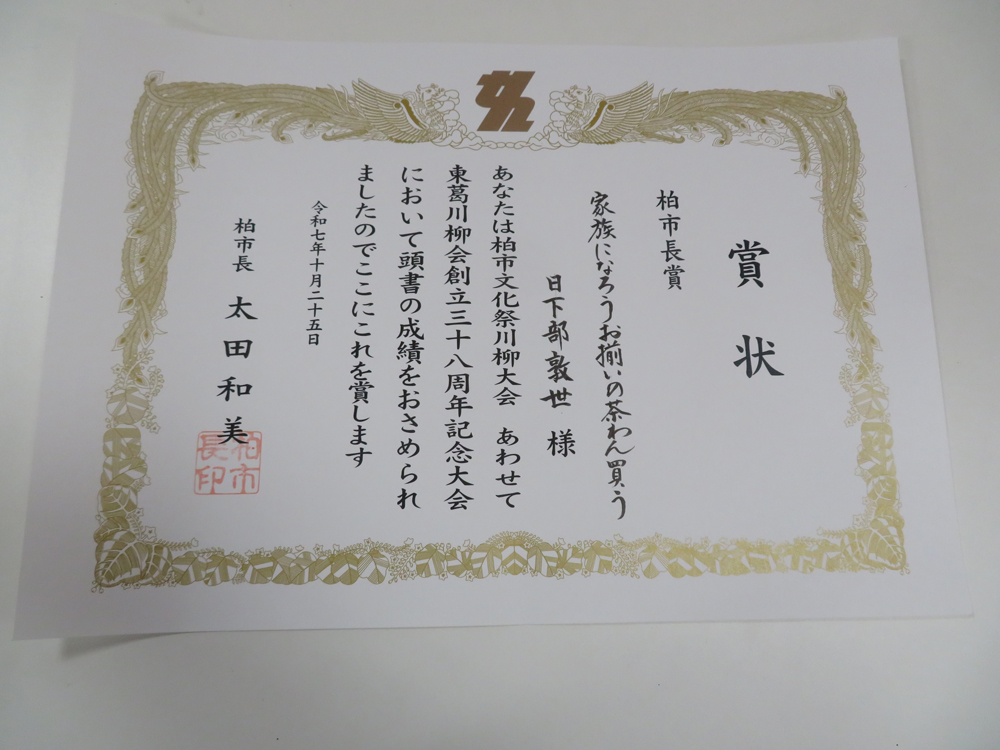 賞状
柏市長賞
家族になろうお揃いの茶わん買う
日下部敦世 様
あなたは柏市文化祭川柳大会 あわせて
東葛川柳会創立三十八周年記念大会
において頭書の成績をおさめられ
ましたのでここにこれを賞します
令和七年十月二十五日
柏市長 太田和美
柏市
長印